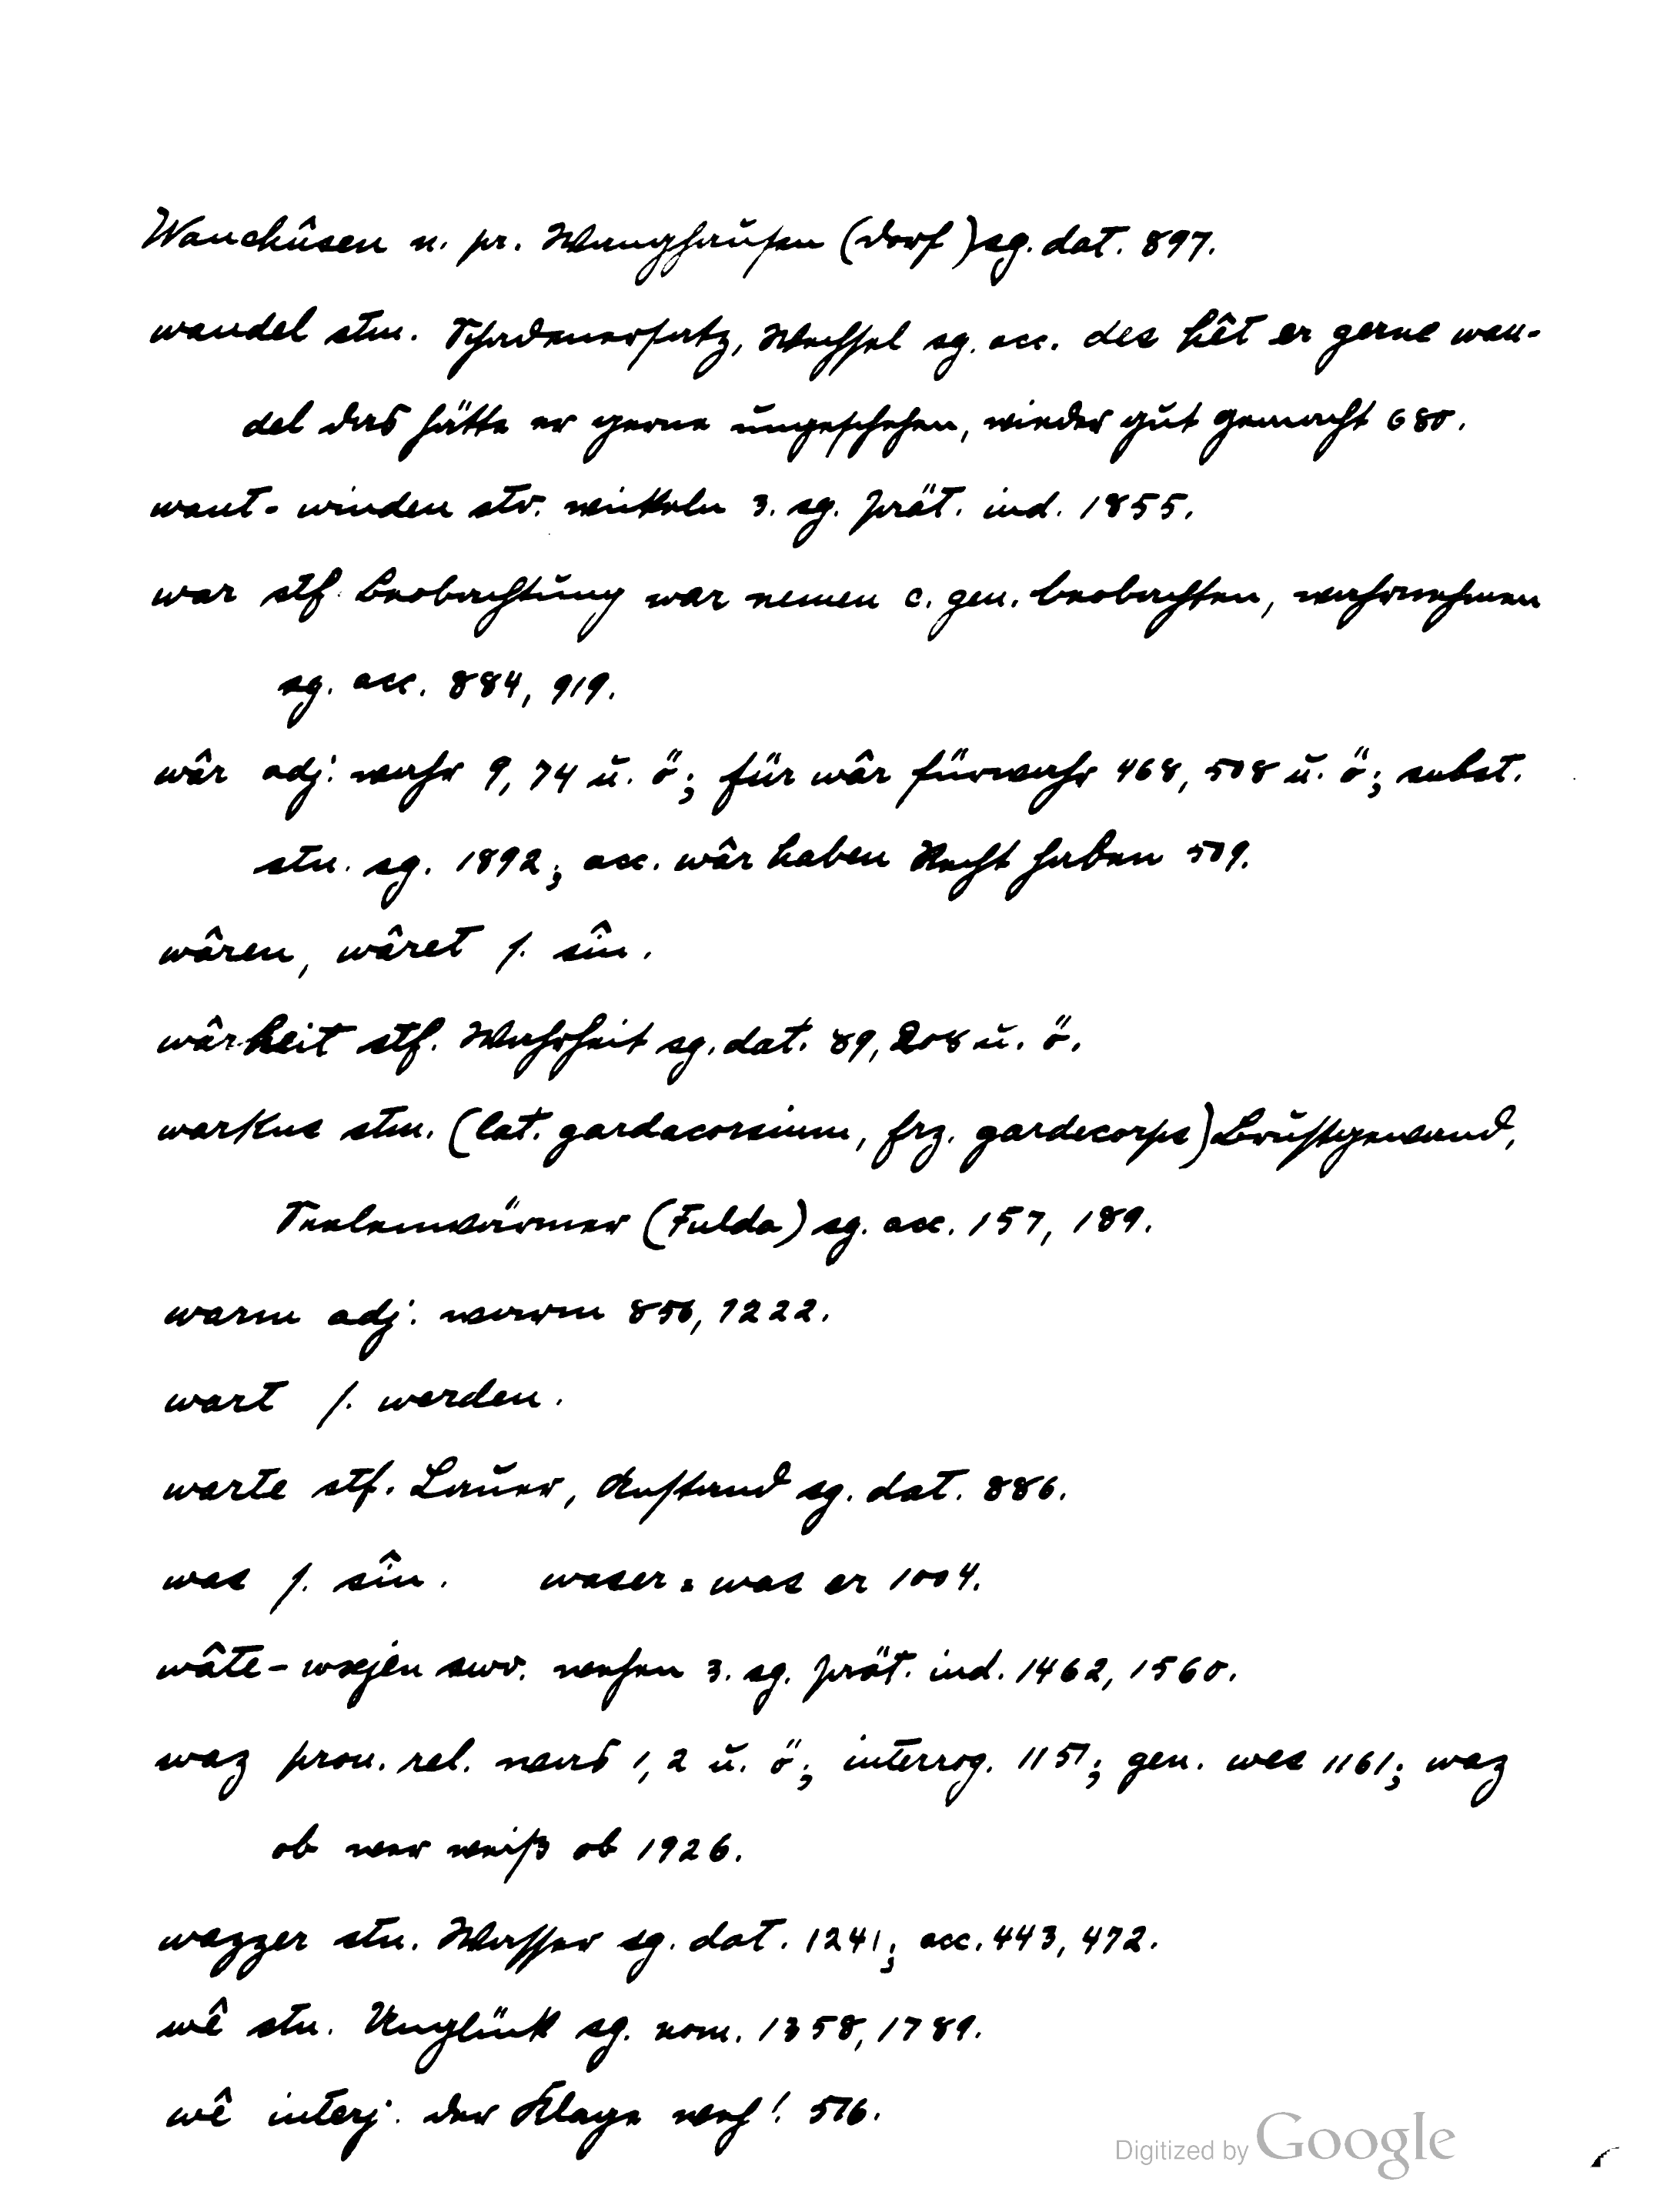 Wanchûsen n. pr. Wanghausen (Dorf) sg. dat. 897.
wandel stm. Schadenersatz, Wechsel sg. acc. des hêt er gerne wan-
del das hätte er gerne ungeschehen, wieder gut gemacht 680.
want - winden stv. wickeln 3. sg. prät. ind. 1855.
war stf. Beobachtung war nemen c. gen. beobachten, wahrnehmen
sg. acc. 884, 919.
wâr adj. wahr 9, 74 u. ö; für wâr fürwahr 468, 508 u. ö; subst.
stn. sg. 1892; acc. wâr haben Recht haben 509.
wâren, wâret s. sîn.
wârheit stf. Wahrheit sg. dat. 89, 208 u. ö.
warkus stm. (lat. gardacorsium, frz. gardecorps) Brustgewand,
Seelenwärmer (Fulda) sg. acc. 157, 189.
warm adj. warm 856, 1222.
wart s. werden.
warte stf. Lauer, Anstand sg. dat. 886.
was s. sîn. waser = was er 1004.
wâte - wæjen swv. wehen 3. sg. prät. ind. 1462, 1560.
waz pron. rel. was 1, 2 u. ö; interrog. 1151; gen. wes 1161; waz
ob wer weiß ob 1926.
wazzer stn. Wasser sg. dat. 1241; acc. 443, 472.
wê stn. Unglück sg. nom. 1358, 1789.
wê interj. der Klage weh! 576.
Digitized by Google